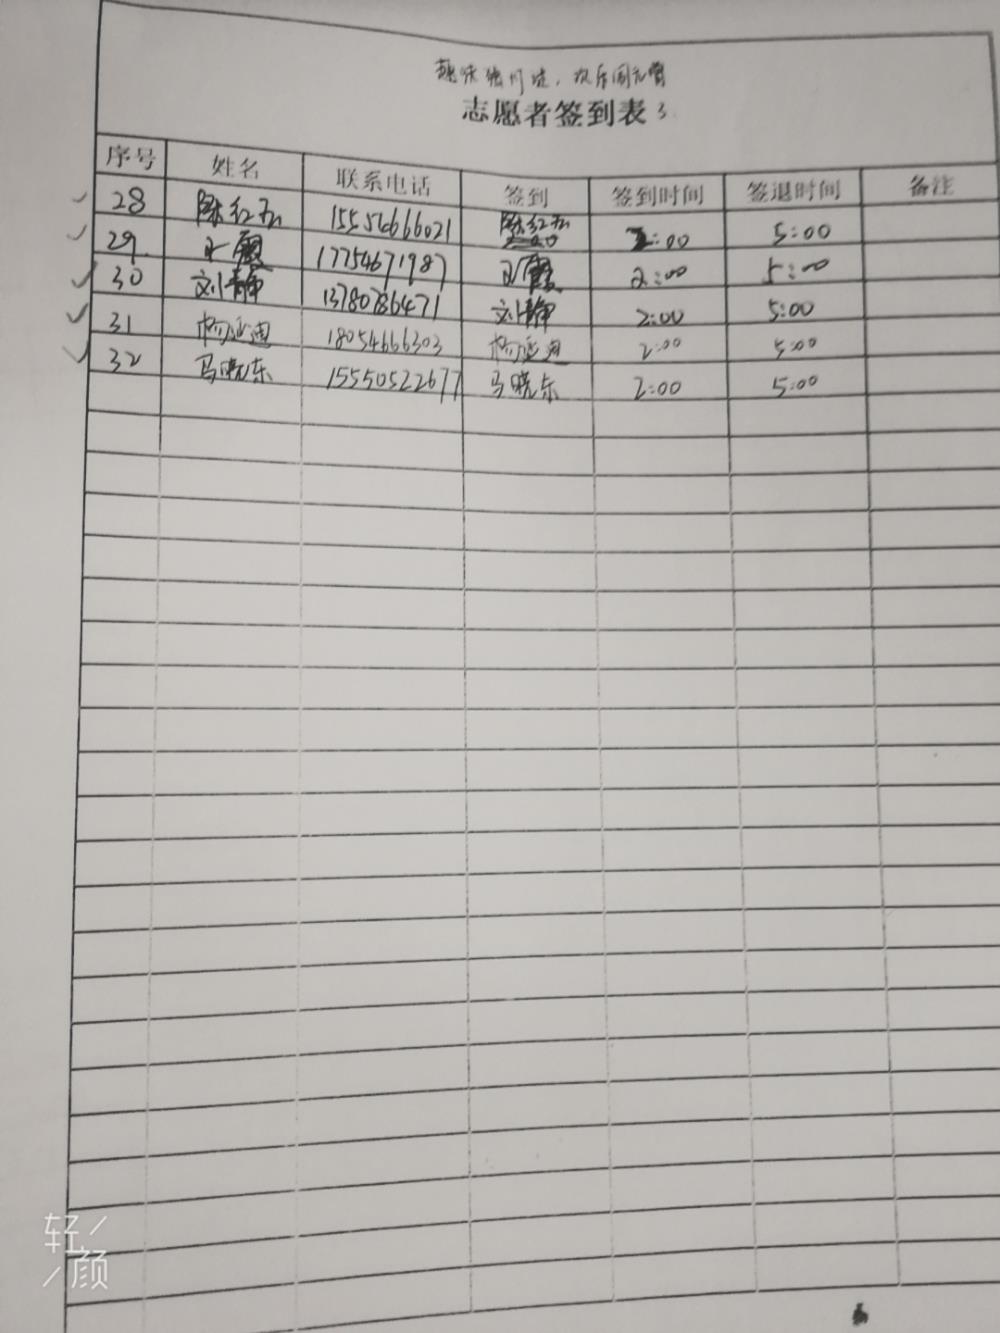 趣味猜灯谜，欢乐闹元宵
志愿者签到表3
序号 姓名 联系电话 签到 签到时间 签退时间 备注
28 15554666021 2:00 5:00
29 王霞 17754671987 王霞 2:00 5:00
30 刘静 13780786471 刘静 2:00 5:00
31 18054666303 2:00 5:00
32 马晓东 15550522677 马晓东 2:00 5:00
轻
颜